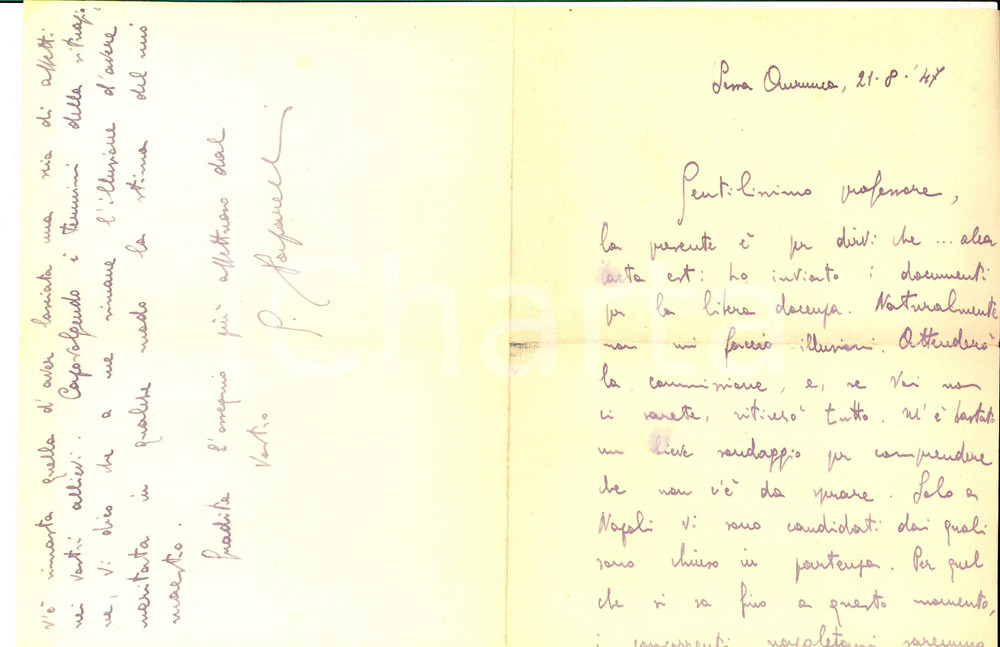 Sessa Aurunca, 21-8-'47
Gentilissimo professore,
la presente è per dirvi che ... alea
iacta est: ho inviato i documenti
per la libera docenza. Naturalmente
non mi faccio illusioni. Attenderò
la commissione, e, se Voi non
ci sarete, ritirerò tutto. M'è bastato
un lieve sondaggio per comprendere
che non c'è da sperare. Solo a
Napoli vi sono candidati dai quali
sono chiuso in partenza. Per quel
che si sa fino a questo momento,
i concorrenti napoletani saremmo
v'è rimasta quella d'aver lasciata una scia di affetti
nei vostri allievi. Capovolgendo i termini della situazio
ne, Vi dico che a me rimane l'illusione d'avere
meritata in qualche modo la stima del mio
maestro.
Gradite l'ossequio più affettuoso dal
Vostro
P.
Charta